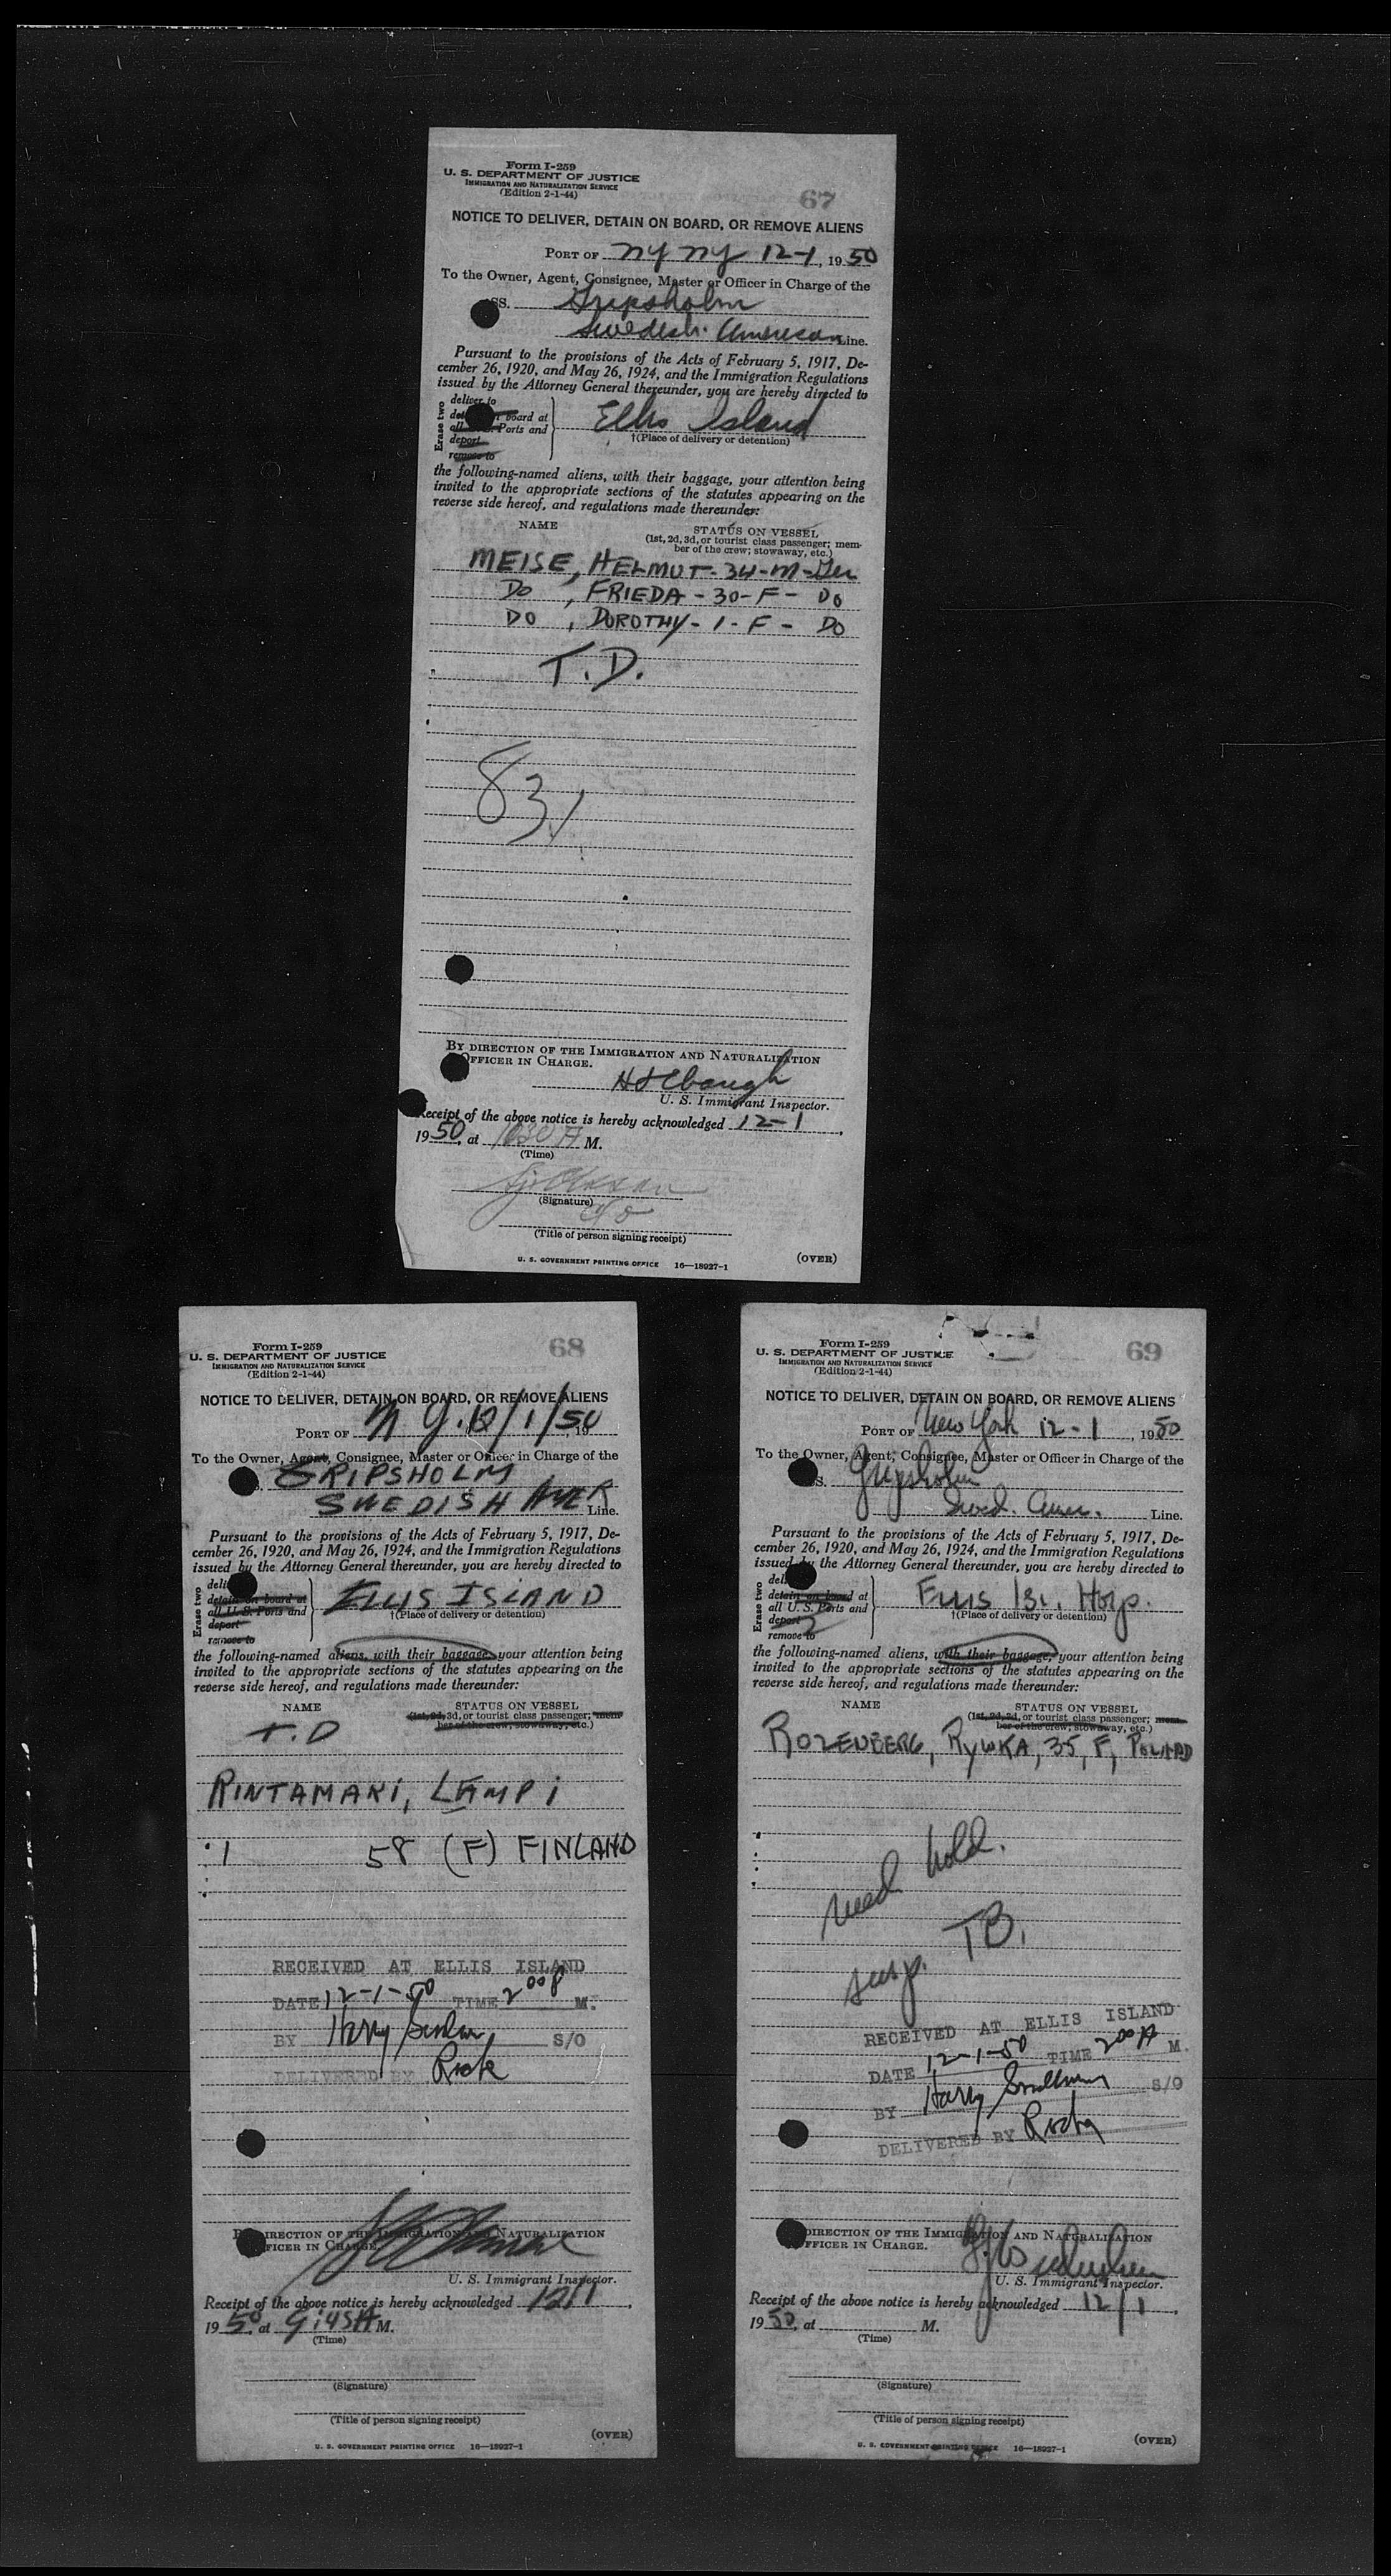 Form I-259
U. S. DEPARTMENT OF JUSTICE
IMMIGRATION AND NATURALIZATION SERVICE
(Edition 2-1-44)
67
NOTICE TO DELIVER, DETAIN ON BOARD, OR REMOVE ALIENS
PORT OF NY NY 12-1, 1950
To the Owner, Agent, Consignee, Master or Officer in Charge of the
SS. Gripsholm
Swedish American Line.
Pursuant to the provisions of the Acts of February 5, 1917, De-
cember 26, 1920, and May 26, 1924, and the Immigration Regulations
issued by the Attorney General thereunder, you are hereby directed to
Erase two
deliver to
board at
all Ports and
deport
remove to
Ellis Island
†(Place of delivery or detention)
the following-named aliens, with their baggage, your attention being
invited to the appropriate sections of the statutes appearing on the
reverse side hereof, and regulations made thereunder:
NAME
STATUS ON VESSEL
(1st, 2d, 3d, or tourist class passenger; mem-
ber of the crew; stowaway, etc.)
MEISE, HELMUT - 34 - M - Ger
DO , FRIEDA - 30 - F - DO
DO , DOROTHY - 1 - F - DO
T.D.
83/
BY DIRECTION OF THE IMMIGRATION AND NATURALIZATION
OFFICER IN CHARGE.
U. S. Immigrant Inspector.
Receipt of the above notice is hereby acknowledged 12-1,
1950, at 1030 A M.
(Time)
(Signature)
(Title of person signing receipt)
U. S. GOVERNMENT PRINTING OFFICE 16—18927-1
(OVER)
Form I-259
U. S. DEPARTMENT OF JUSTICE
IMMIGRATION AND NATURALIZATION SERVICE
(Edition 2-1-44)
68
NOTICE TO DELIVER, DETAIN ON BOARD, OR REMOVE ALIENS
PORT OF N Y. 12/1/50, 19
To the Owner, Agent, Consignee, Master or Officer in Charge of the
GRIPSHOLM
SWEDISH AMER Line.
Pursuant to the provisions of the Acts of February 5, 1917, De-
cember 26, 1920, and May 26, 1924, and the Immigration Regulations
issued by the Attorney General thereunder, you are hereby directed to
Erase two
detain on board at
all U. S. Ports and
deport
remove to
ELLIS ISLAND
†(Place of delivery or detention)
the following-named aliens, with their baggage, your attention being
invited to the appropriate sections of the statutes appearing on the
reverse side hereof, and regulations made thereunder:
NAME
STATUS ON VESSEL
(1st, 2d, 3d, or tourist class passenger; mem-
ber of the crew; stowaway, etc.)
T.D
RINTAMAKI, LAMPI
1 58 (F) FINLAND
RECEIVED AT ELLIS ISLAND
DATE 12-1-50 TIME 2 00 P M.
BY Harry S/O
DELIVERED BY
BY DIRECTION OF THE IMMIGRATION AND NATURALIZATION
OFFICER IN CHARGE.
U. S. Immigrant Inspector.
Receipt of the above notice is hereby acknowledged 12/1,
1950, at 9:45A M.
(Time)
(Signature)
(Title of person signing receipt)
(OVER)
U. S. GOVERNMENT PRINTING OFFICE 16—18927-1
Form I-259
U. S. DEPARTMENT OF JUSTICE
IMMIGRATION AND NATURALIZATION SERVICE
(Edition 2-1-44)
69
NOTICE TO DELIVER, DETAIN ON BOARD, OR REMOVE ALIENS
PORT OF New York 12-1, 1950
To the Owner, Agent, Consignee, Master or Officer in Charge of the
S. Gripsholm
Swed. Amer. Line.
Pursuant to the provisions of the Acts of February 5, 1917, De-
cember 26, 1920, and May 26, 1924, and the Immigration Regulations
issued by the Attorney General thereunder, you are hereby directed to
Erase two
detain on board at
all U. S. Ports and
deport
remove to
Ellis Isl. Hosp.
†(Place of delivery or detention)
the following-named aliens, with their baggage, your attention being
invited to the appropriate sections of the statutes appearing on the
reverse side hereof, and regulations made thereunder:
NAME
STATUS ON VESSEL
(1st, 2d, 3d, or tourist class passenger; mem-
ber of the crew; stowaway, etc.)
ROZENBERG, RYWKA, 35, F, POLAND
med hold.
susp. TB.
RECEIVED AT ELLIS ISLAND
DATE 12-1-50 TIME 2 00 P M.
BY Harry S/O
DELIVERED BY
BY DIRECTION OF THE IMMIGRATION AND NATURALIZATION
OFFICER IN CHARGE.
U. S. Immigrant Inspector.
Receipt of the above notice is hereby acknowledged 12/1,
1950, at M.
(Time)
(Signature)
(Title of person signing receipt)
(OVER)
U. S. GOVERNMENT PRINTING OFFICE 16—18927-1